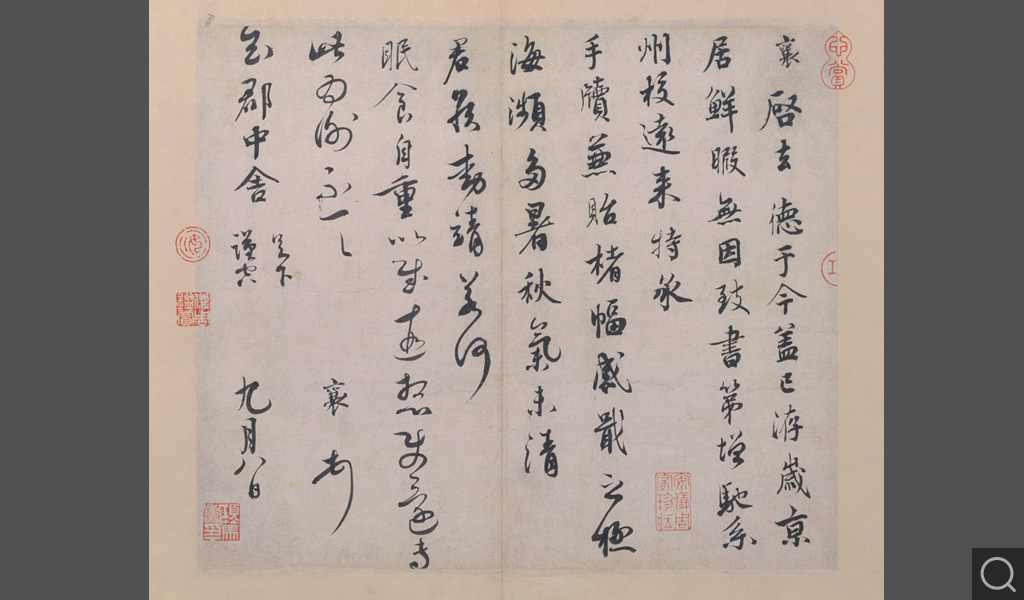 襄啓去德于今蓋已涉歲京
居鮮暇無因致書第增馳系
州校遠來特承
手牘兼貽楮幅感戢之極
海瀕多暑秋氣未清
君候動靖若何
眠食自重以慰遠想使還專
此爲謝不一一
襄頓首
知郡中舍足下
謹空
九月八日